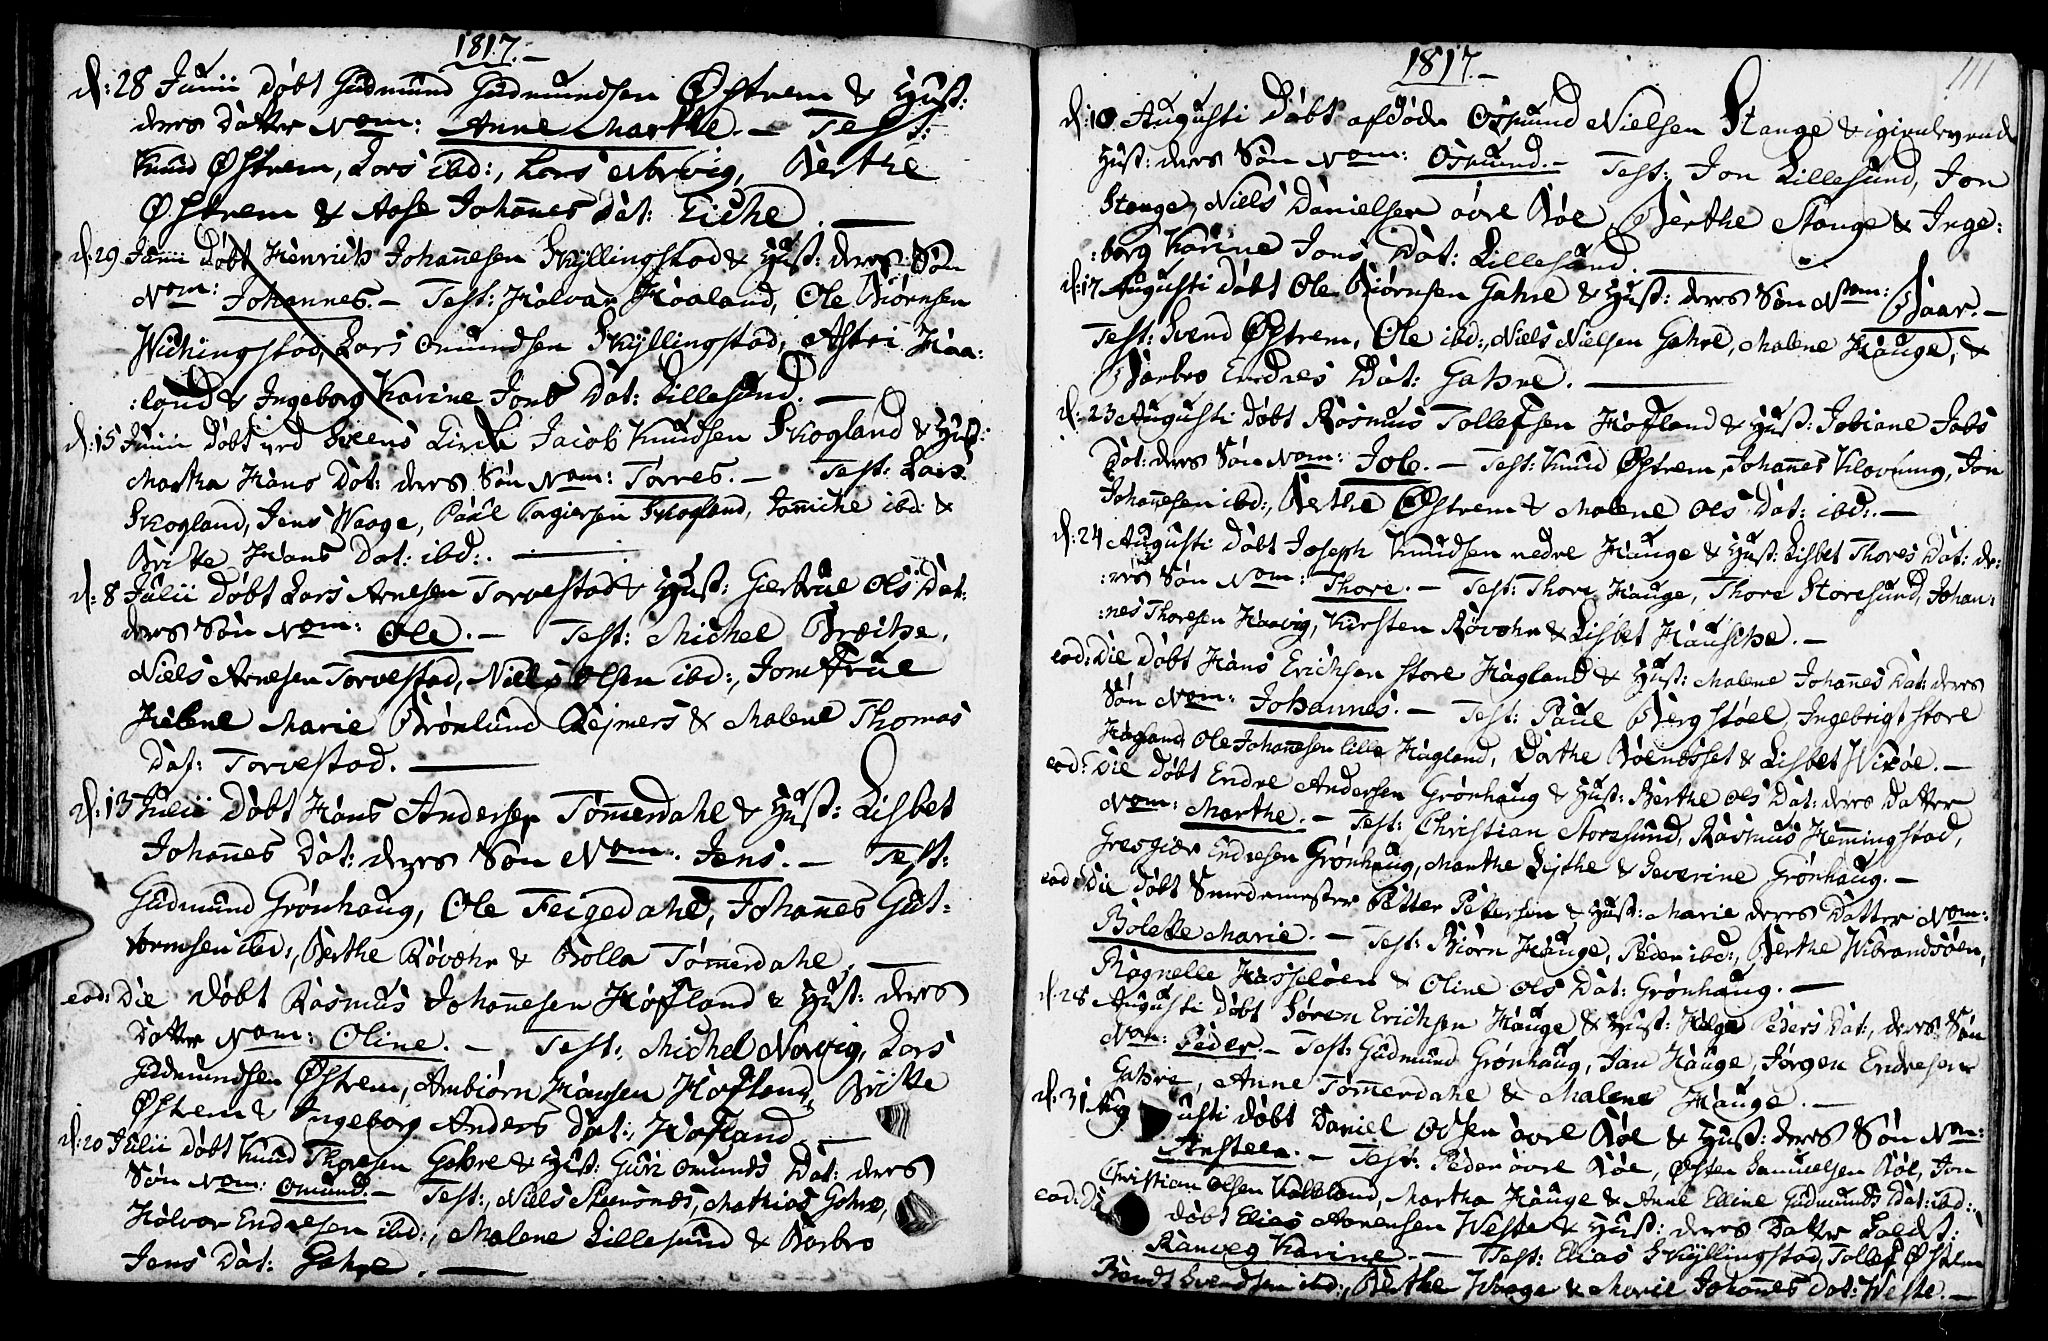 1817.-
d: 28 Junii Døbt Gudmund Gudmundsen Østrem & Hust:
deres Datter Nom: Anne Marthe. - Test:
Knud Østrem, Lars ibd:, Lars Norvig, Berthe
Østrem & Aase Johañes Dat: Eiche.
d: 29 Junii Døbt Henrich Johañesen Skyllingstad & Hust: deres Søn
Nom: Johannes. - Test: Halvar Haaland, Ole Biørnsen
Wichingstad, Lars Omundsen Skyllingstad, Astri Haa:
:land & Ingeborg Karine Jons Dat: Lillesund.
d: 15 Junii Døbt ved Sveens Kirche Jacob Knudsen Skogland & Hust:
Martha Hans Dat: deres Søn Nom: Torres. - Test: Lars
Skogland, Jens Waage, Paul Skogland, Jañiche ibd: &
Britte Hans Dat: ibd:.
d: 8 Julii Døbt Lars Arnesen Torvestad & Hust: Giertrue Ols Dat:
deres Søn Nom: Ole. - Test: Michel Bræche,
Niels Arnesen Torvestad, Niels Olsen ibd:, Jomfrue
Helene Marie Brønlund Rejners & Malene Thomas
Dat: Torvestad.
d: 13 Julii Døbt Hans Andersen Tom̃erdahl & Hust: Lisbet
Johañes Dat: deres Søn Nom: Jens. - Test:
Gudmund Grønhaug, Ole Feigedahl, Johañes Gut-
tormsen ibd:, Berthe Røvær & Bolla Tom̃erdahl.
eod: Die Døbt Rasmus Johañesen Hofland & Hust: deres
Datter Nom: Oline. - Test: Michel Norvig, Lars
Gudmundsen Østrem, Ambiørn Hansen Hofland, Britte
Østrem & Ingeborg Anders Dat: Hofland.
d: 20 Julii Døbt Knud Thoresen Gahre & Hust: Guri Omunds Dat: deres
Søn Nom: Omund. - Test: Niels Steensnes, Mathias Gahre,
Halvor Endresen ibd:, Malene Lillesund & Barbro
Jens Dat: Gahre.
1817.-
111
d: 10 Augusti Døbt afdøde Osmund Nielsen Stange & igienlevende
Hust: deres Søn Nom: Osmund. - Test: Jon Lillesund, Jon
Stange, Niels Danielsen øvre Bøe, Berthe Stange & Inge:
:borg Karine Jons Dat: Lillesund.
d: 17 Augusti Døbt Ole Biørnsen Gahre & Hust: deres Søn Nom: Baar. -
Test: Svend Østrem, Ole ibd:, Niels Nielsen Gahre, Malene Hauge, &
Barbro Endres Dat: Gahre.
d: 23 Augusti Døbt Rasmus Tollefsen Hofland & Hust: Jobiane Jobs
Dat: deres Søn Nom: Job. - Test: Knud Østrem, Johañes Klovning, Jon
Johañesen ibd:, Berthe Østrem & Malene Ols Dat: ibd:. -
d: 24 Augusti Døbt Joseph Knudsen nedre Hauge & Hust: Lisbet Thores Dat: de:
:res Søn Nom: Thore. - Test: Thore Hauge, Thore Storesund, Johan:
:nes Thoresen Haavig, Kirsten Røvær & Lisbet Hausche. -
eod: Die Døbt Hans Erichsen store Hagland & Hust: Malene Johañes Dat: deres
Søn Nom: Johannes. - Test: Paul Bergstøel, Ingebrigt store
Hagland, Ole Johañesen lille Hagland, Dorthe Bølnesset & Lisbet Wixøe. -
eod: Die Døbt Endre Andersen Grønhaug & Hust: Berthe Ols Dat: deres Datter
Nom: Marthe. - Test: Christian Storesund, Rasmus Hem̃ingstad,
Greogier Endresen Grønhaug, Marthe Lythe & Severine Grønhaug. -
eod: Die Døbt Smedemester Petter Pettersen & Hust: Marie deres Datter Nom:
Bolette Marie. - Test: Biørn Hauge, Peder ibd:, Berthe Wibrandsøen,
Ragnelle Hasseløen & Oline Ols Dat: Grønhaug. -
d: 28 Augusti Døbt Søren Erichsen Hauge & Hust: Helge Peders Dat:, deres Søn
Nom: Peder. - Test: Gudmund Grønhaug, Jan Hauge, Jørgen Endresen
Gahre, Anne Tom̃erdahl & Malene Hauge. -
d: 31 Augusti Døbt Daniel Olsen øvre Bøe & Hust: deres Søn Nom:
Ansteen. - Test: Peder øvre Bøe, Østen Samuelsen Bøe, Jon
Christian Olsen Kalleland, Martha Hauge & Anne Elline Gudmunds Dat: ibd:.
eod: Di Døbt Elias Aanensen Weste & Hust: deres Datter kaldt:
Ranveg Karine. - Test: Elias Skyllingstad, Tollef Østrem
Svendsen ibd:, Berthe Waage & Marie Johañes Dat: Weste. -